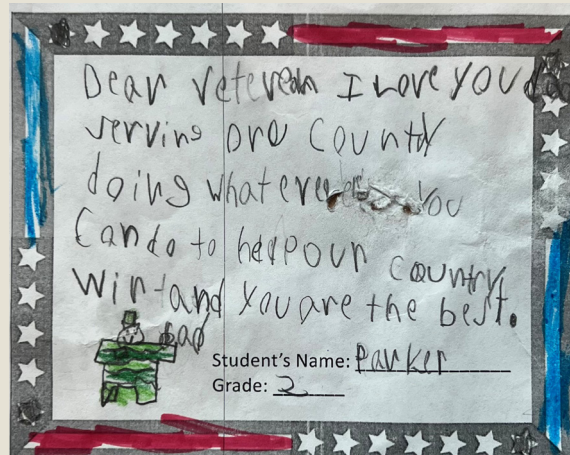 Dear veteran I Love YOU
serving oro County
doing whatever you
Can do to help our country
Win and you are the best.
Dad
Student's Name: Parker
Grade: 2